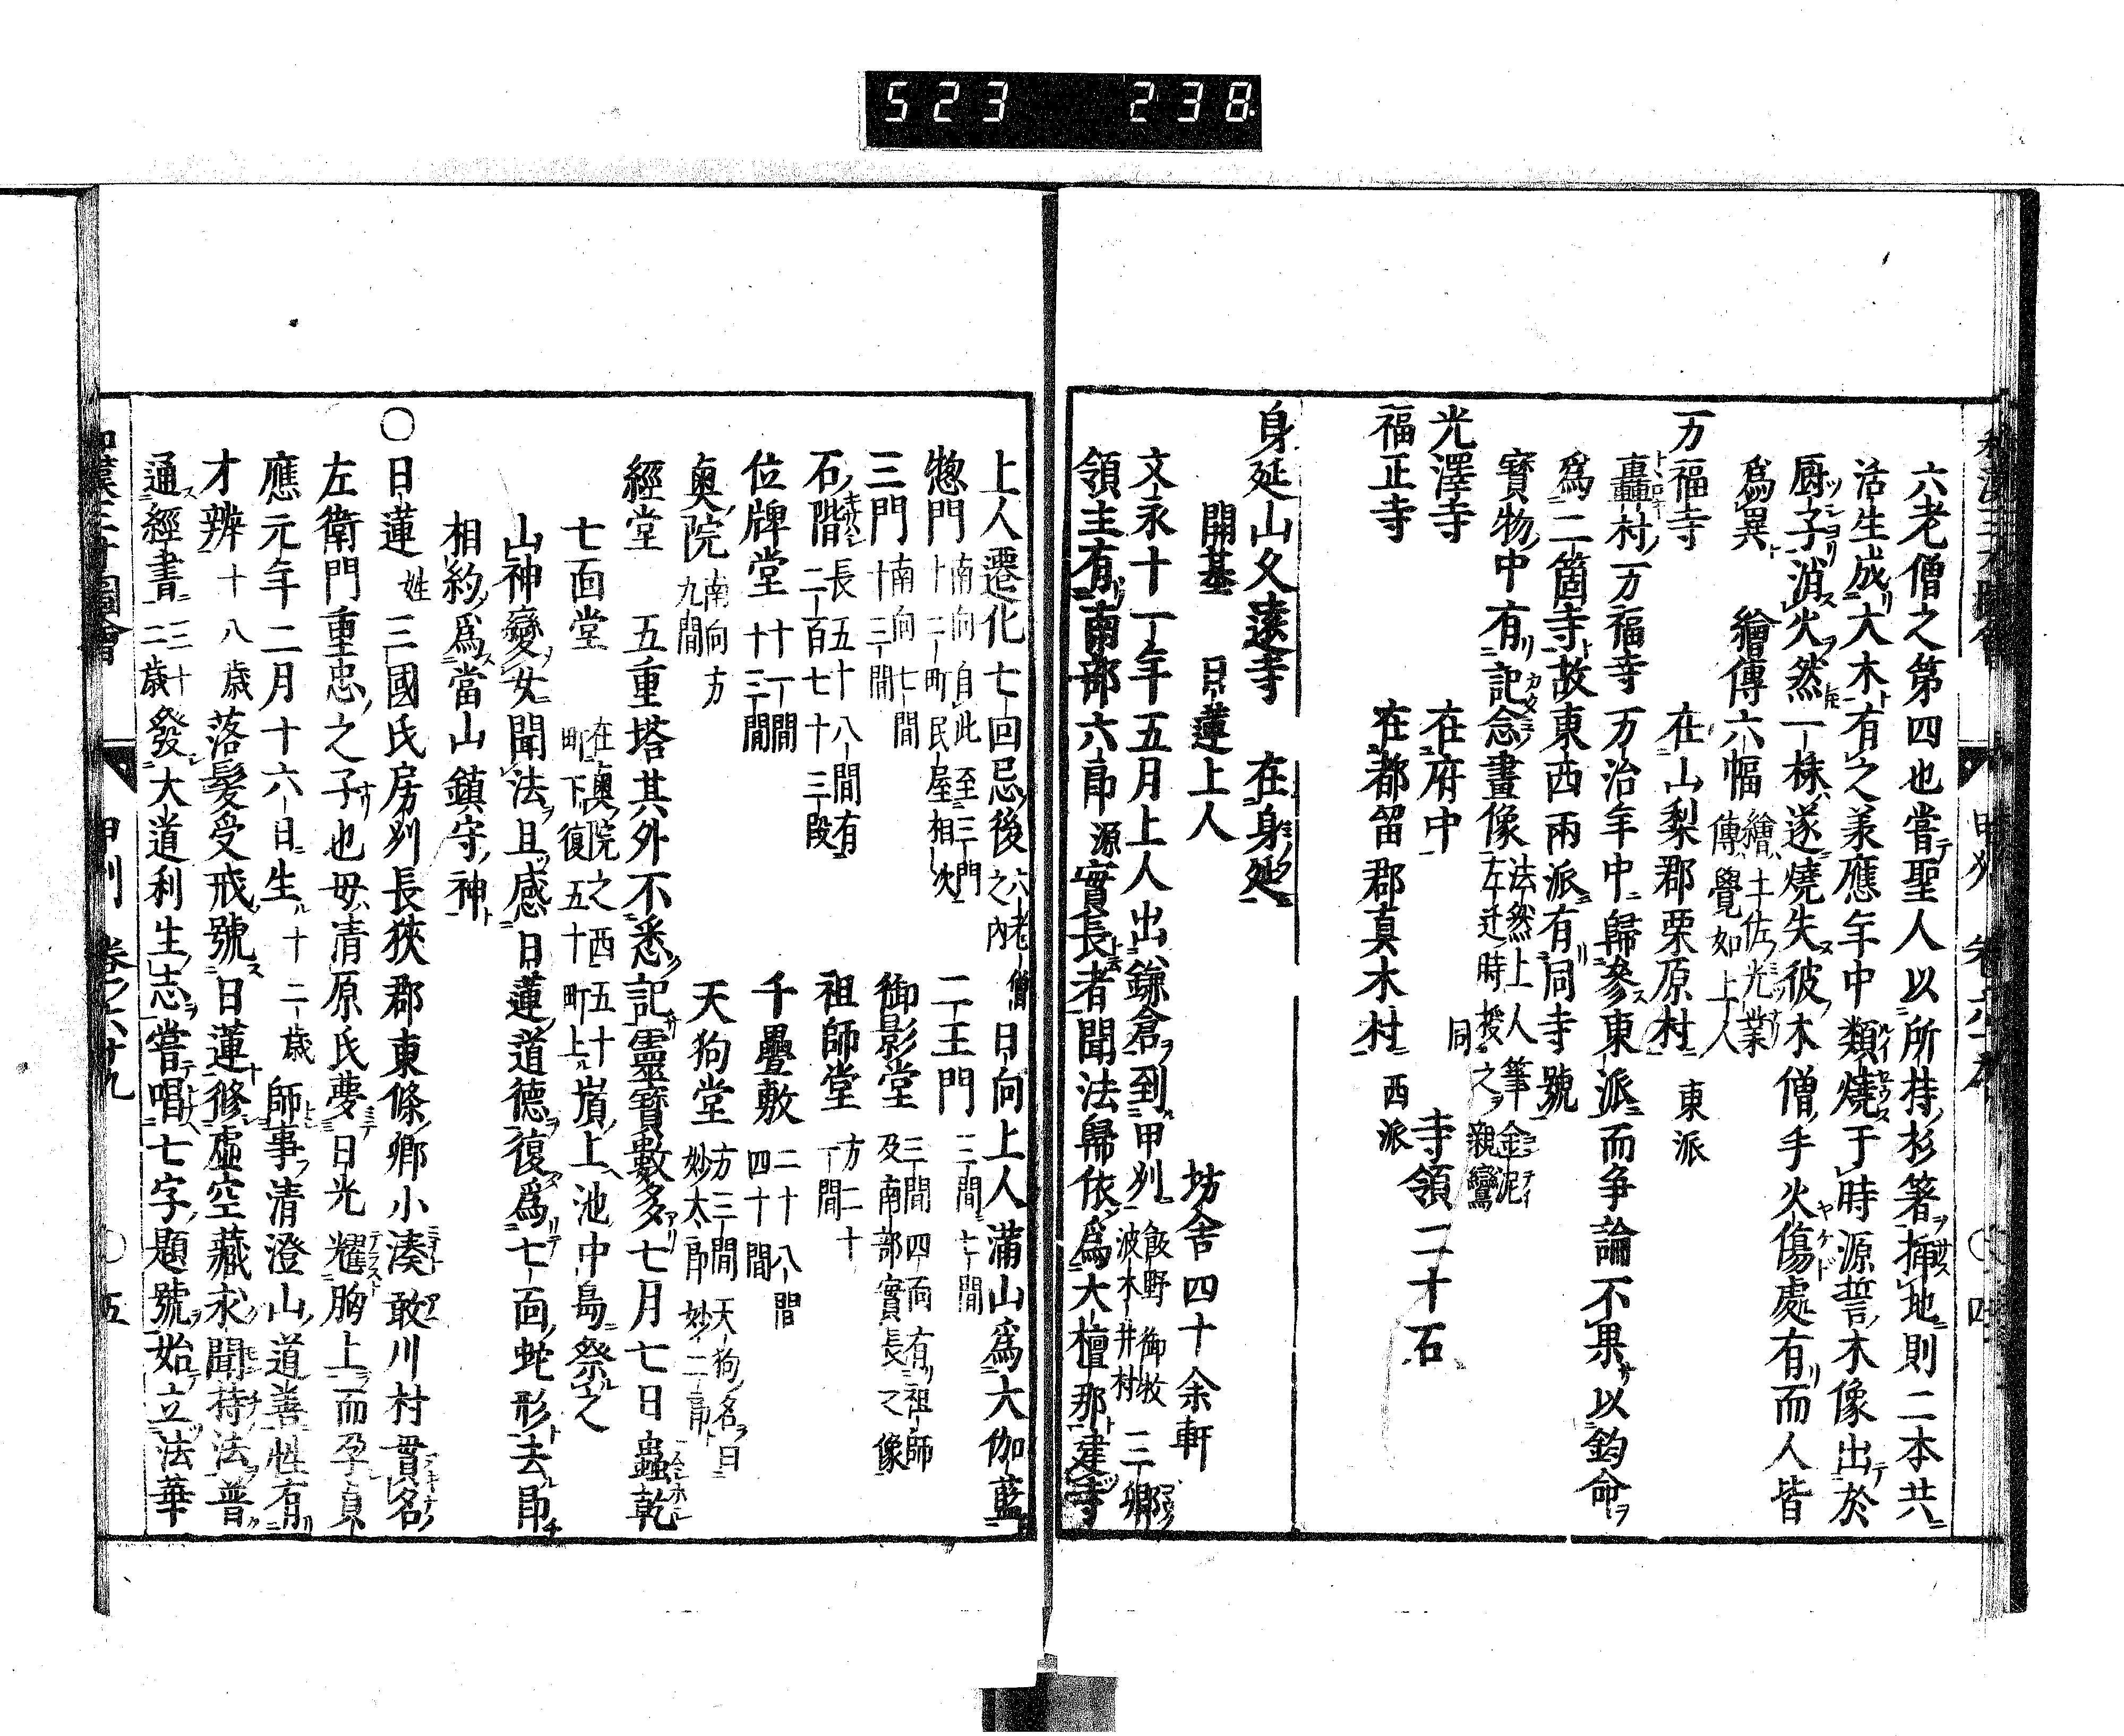 523 238
和漢三才圖會 甲州 卷六十九 ○四
六老僧之第四也嘗聖人以所持杉箸揷地則二本共
活生成大木有之承應年中類燒于時源誓木像出於
厨子消火然一株遂燒失彼木僧手火傷處有而人皆
爲異 繪傳六幅 繪土佐光業 傳覺如上人
万福寺 在山梨郡栗原村 東派
轟村万福寺万治年中歸參東派而争論不果以鈞命
爲二箇寺故東西兩派有同寺號
寳物中有記念畫像 法然上人筆金泥 左迁時授之親鸞
光澤寺 在府中 同 寺領二十石
福正寺 在都留郡真木村 西派
身延山久遠寺 在身延
開基 日蓮上人 坊舍四十余軒
文永十一年五月上人出鎌倉到甲刕 飯野御牧 波木井村 三郷
領主有南部六郎源實長者聞法歸依爲大檀那建寺
上人遷化七回忌後 六老僧 之内 日向上人蒲山爲大伽藍
惣門 南向自此至三門 十二町民屋相次 二王門 三間七間
三門 南向七間 十三間 御影堂 三間四面有祖師 及南部實長之像
石階 長五十八間有 二百七十三段 祖師堂 方二十 一間
位牌堂 十一間 十三間 千疊敷 二十八間 四十間
奥院 南向方 九間 天狗堂 方三間天狗名曰 妙太郎妙二郎
經堂 五重塔其外不悉記靈寳數多七月七日蟲乾
七面堂 在奥院之西五十 町下復五十町上 嵿上池中島祭之
山神變女聞法且感日蓮道德復爲七面蛇形去即
相約爲當山鎮守神
○日蓮 姓 三國氏房刕長狹郡東條鄉小湊敢川村貫名
左衛門重忠之子也母清原氏夢日光耀胸上而孕貞
應元年二月十六日生 十二歳 師事清澄山道善性有
才辨 十八歳 落髮受戒號日蓮修虛空藏求聞持法普
通經書 三十 二歳 發大道利生志嘗唱七字題號始立法華
和漢三才圖會 甲州 卷之六十九 ○五